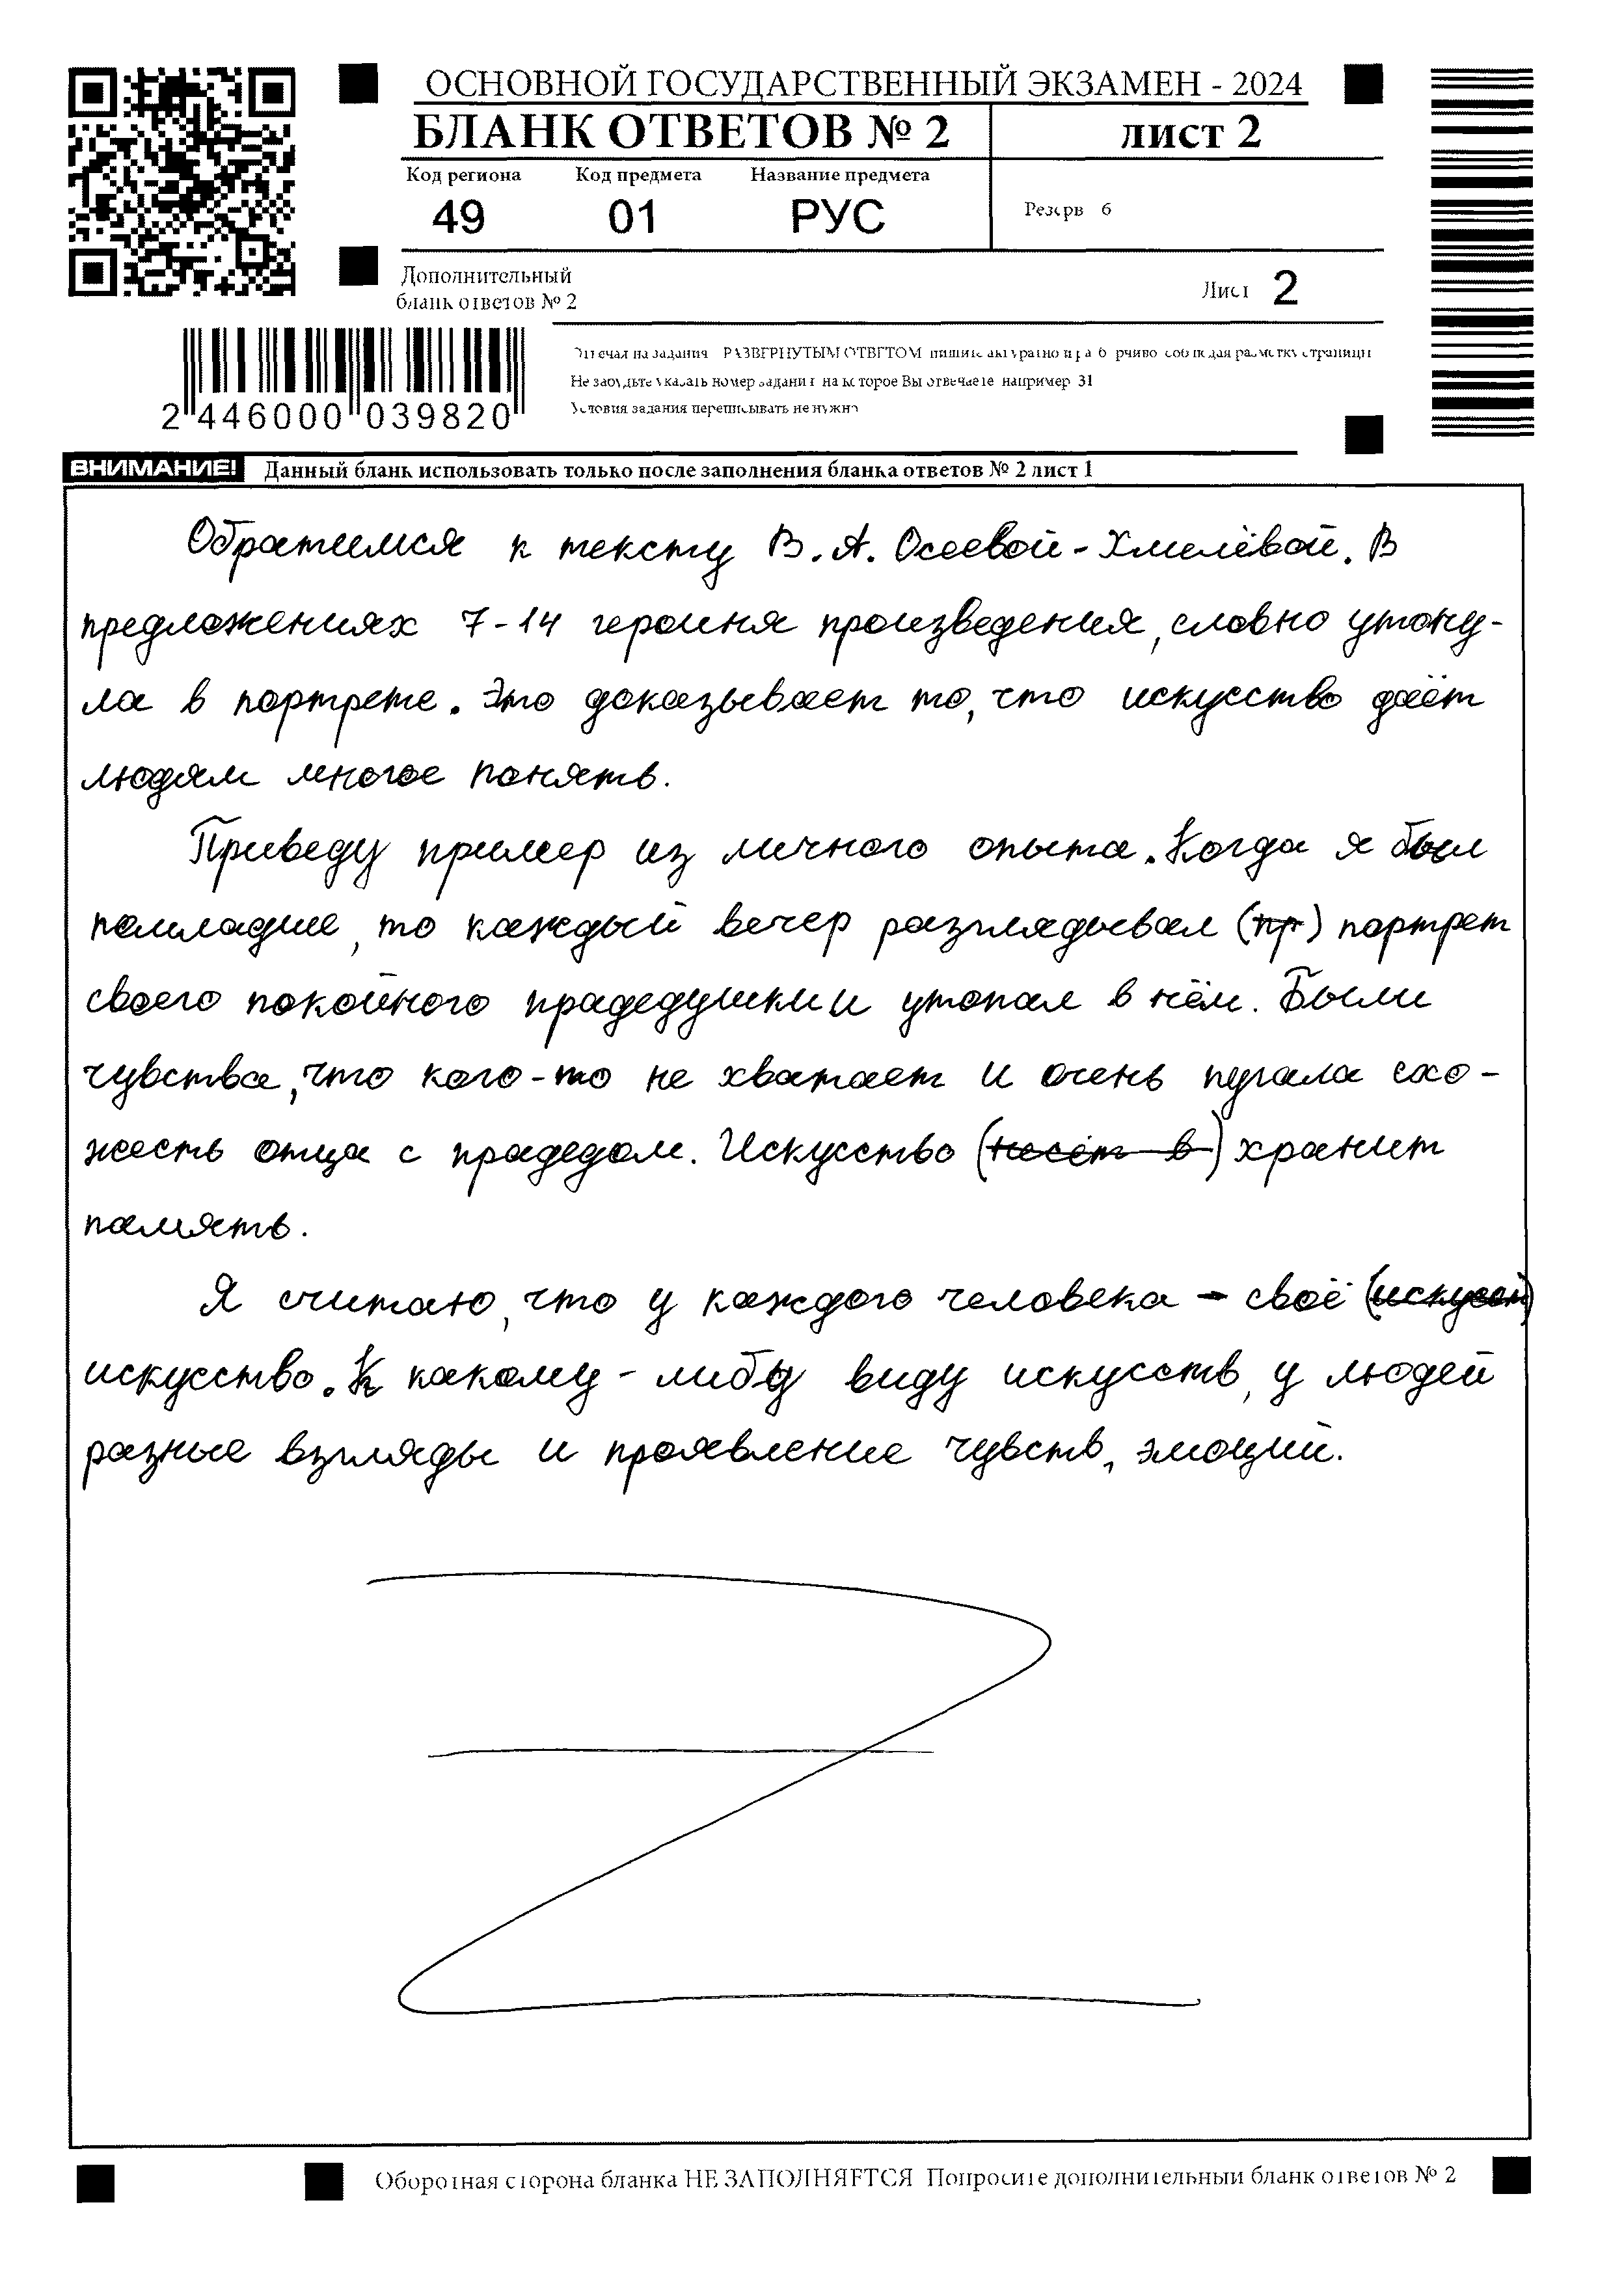 ОСНОВНОЙ ГОСУДАРСТВЕННЫЙ ЭКЗАМЕН - 2024
БЛАНК ОТВЕТОВ № 2
лист 2
Код региона Код предмета Название предмета
49 01 РУС
Резерв 6
Дополнительный
бланк ответов № 2
Лист 2
Отвечая на задания РАЗВЕРНУТЫМ ОТВЕТОМ пишите аккуратно и разборчиво соблюдая разметку страницы
Не забудьте указать номер задания на которое Вы отвечаете например 31
Условия задания переписывать не нужно
2 446000 039820
ВНИМАНИЕ! Данный бланк использовать только после заполнения бланка ответов № 2 лист 1
Обратимся к тексту В.А. Осеевой-Хмелёвой. В
предложениях 7-14 героиня произведения, словно утону-
ла в портрете. Это доказывает то, что искусство даёт
людям многое понять.
Приведу пример из личного опыта. Когда я был
помладше, то каждый вечер разглядывал (пр) портрет
своего покойного прадедушки и утопал в нём. Были
чувства, что кого-то не хватает и очень пугала схо-
жесть отца с прадедом. Искусство (несёт в) хранит
память.
Я считаю, что у каждого человека - своё (искусст)
искусство. К какому-либу виду искусств, у людей
разные взгляды и проявление чувств, эмоций.
Оборотная сторона бланка НЕ ЗАПОЛНЯЕТСЯ Попросите дополнительный бланк ответов № 2